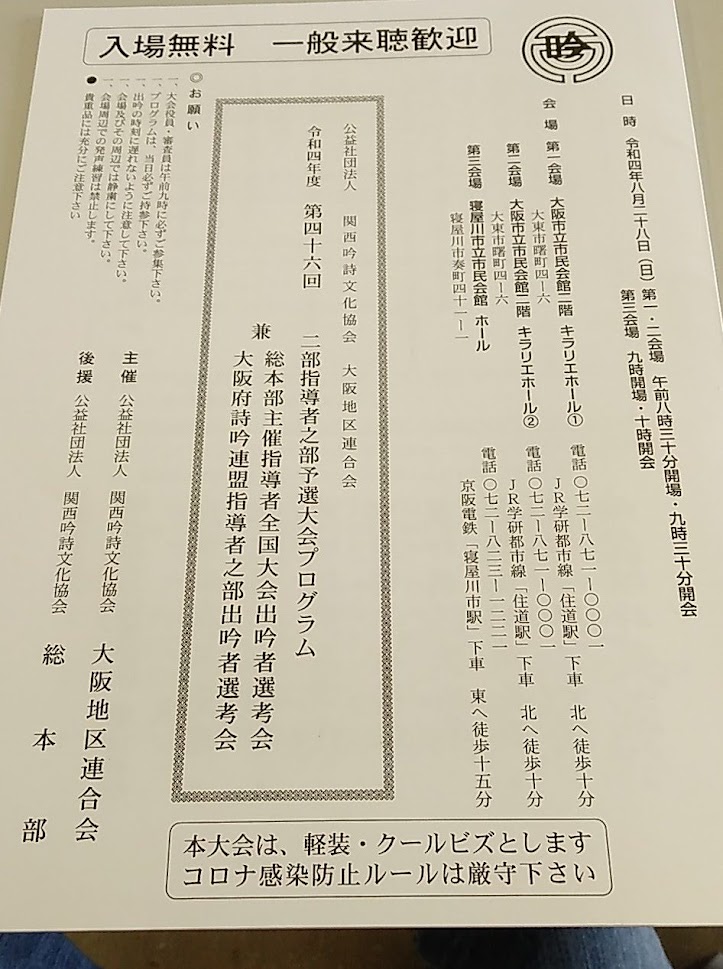 入場無料　一般来聴歓迎
吟
日時　令和四年八月二十八日（日）第一・二会場　午前八時三十分開場・九時三十分開会
第三会場　九時開場・十時開会
会場　第一会場　大阪市立市民会館二階　キラリエホール①　電話〇七二―八七一―〇〇〇一
大東市曙町四―六　JR学研都市線「住道駅」下車　北へ徒歩十分
第二会場　大阪市立市民会館二階　キラリエホール②　電話〇七二―八七一―〇〇〇一
大東市曙町四―六　JR学研都市線「住道駅」下車　北へ徒歩十分
第三会場　寝屋川市立市民会館　ホール　電話〇七二―八二三―一二二一
寝屋川市秦町四十一―一　京阪電鉄「寝屋川市駅」下車　東へ徒歩十五分
公益社団法人　関西吟詩文化協会　大阪地区連合会
令和四年度　第四十六回　二部指導者之部予選大会プログラム
兼　総本部主催指導者全国大会出吟者選考会
大阪府詩吟連盟指導者之部出吟者選考会
◎お願い
一、大会役員・審査員は午前九時に必ずご参集下さい。
一、プログラムは、当日必ずご持参下さい。
一、出吟の時刻に遅れないように注意して下さい。
一、会場及びその周辺では静粛にして下さい。
一、会場周辺での発声練習は禁止します。
●貴重品には充分にご注意下さい
主催　公益社団法人　関西吟詩文化協会　大阪地区連合会
後援　公益社団法人　関西吟詩文化協会　総本部
本大会は、軽装・クールビズとします
コロナ感染防止ルールは厳守下さい